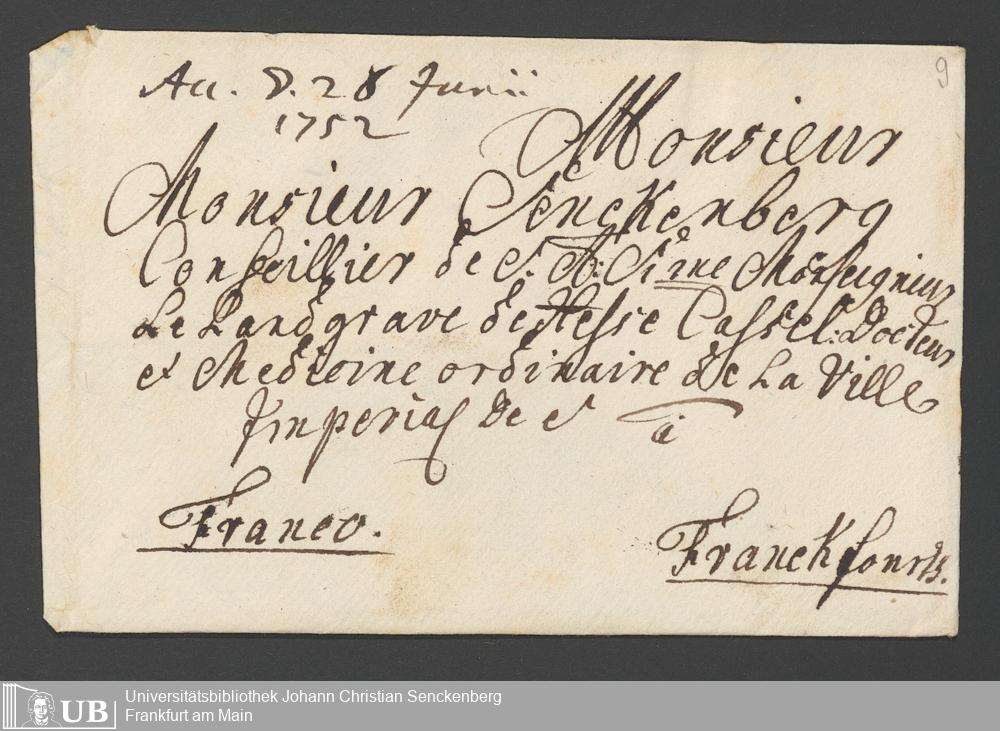 Acc. D. 28 Junii
1752
Monsieur
Monsieur Senckenberg
Conseillier de S. A: Sr̅me Monseigneur
Le Landgrave de Hesse Cassel: Docteur
et Medicine ordinaire de La Ville
Imperial de et
à
Franco.
Franckfourth.
9
UB
Universitätsbibliothek Johann Christian Senckenberg
Frankfurt am Main